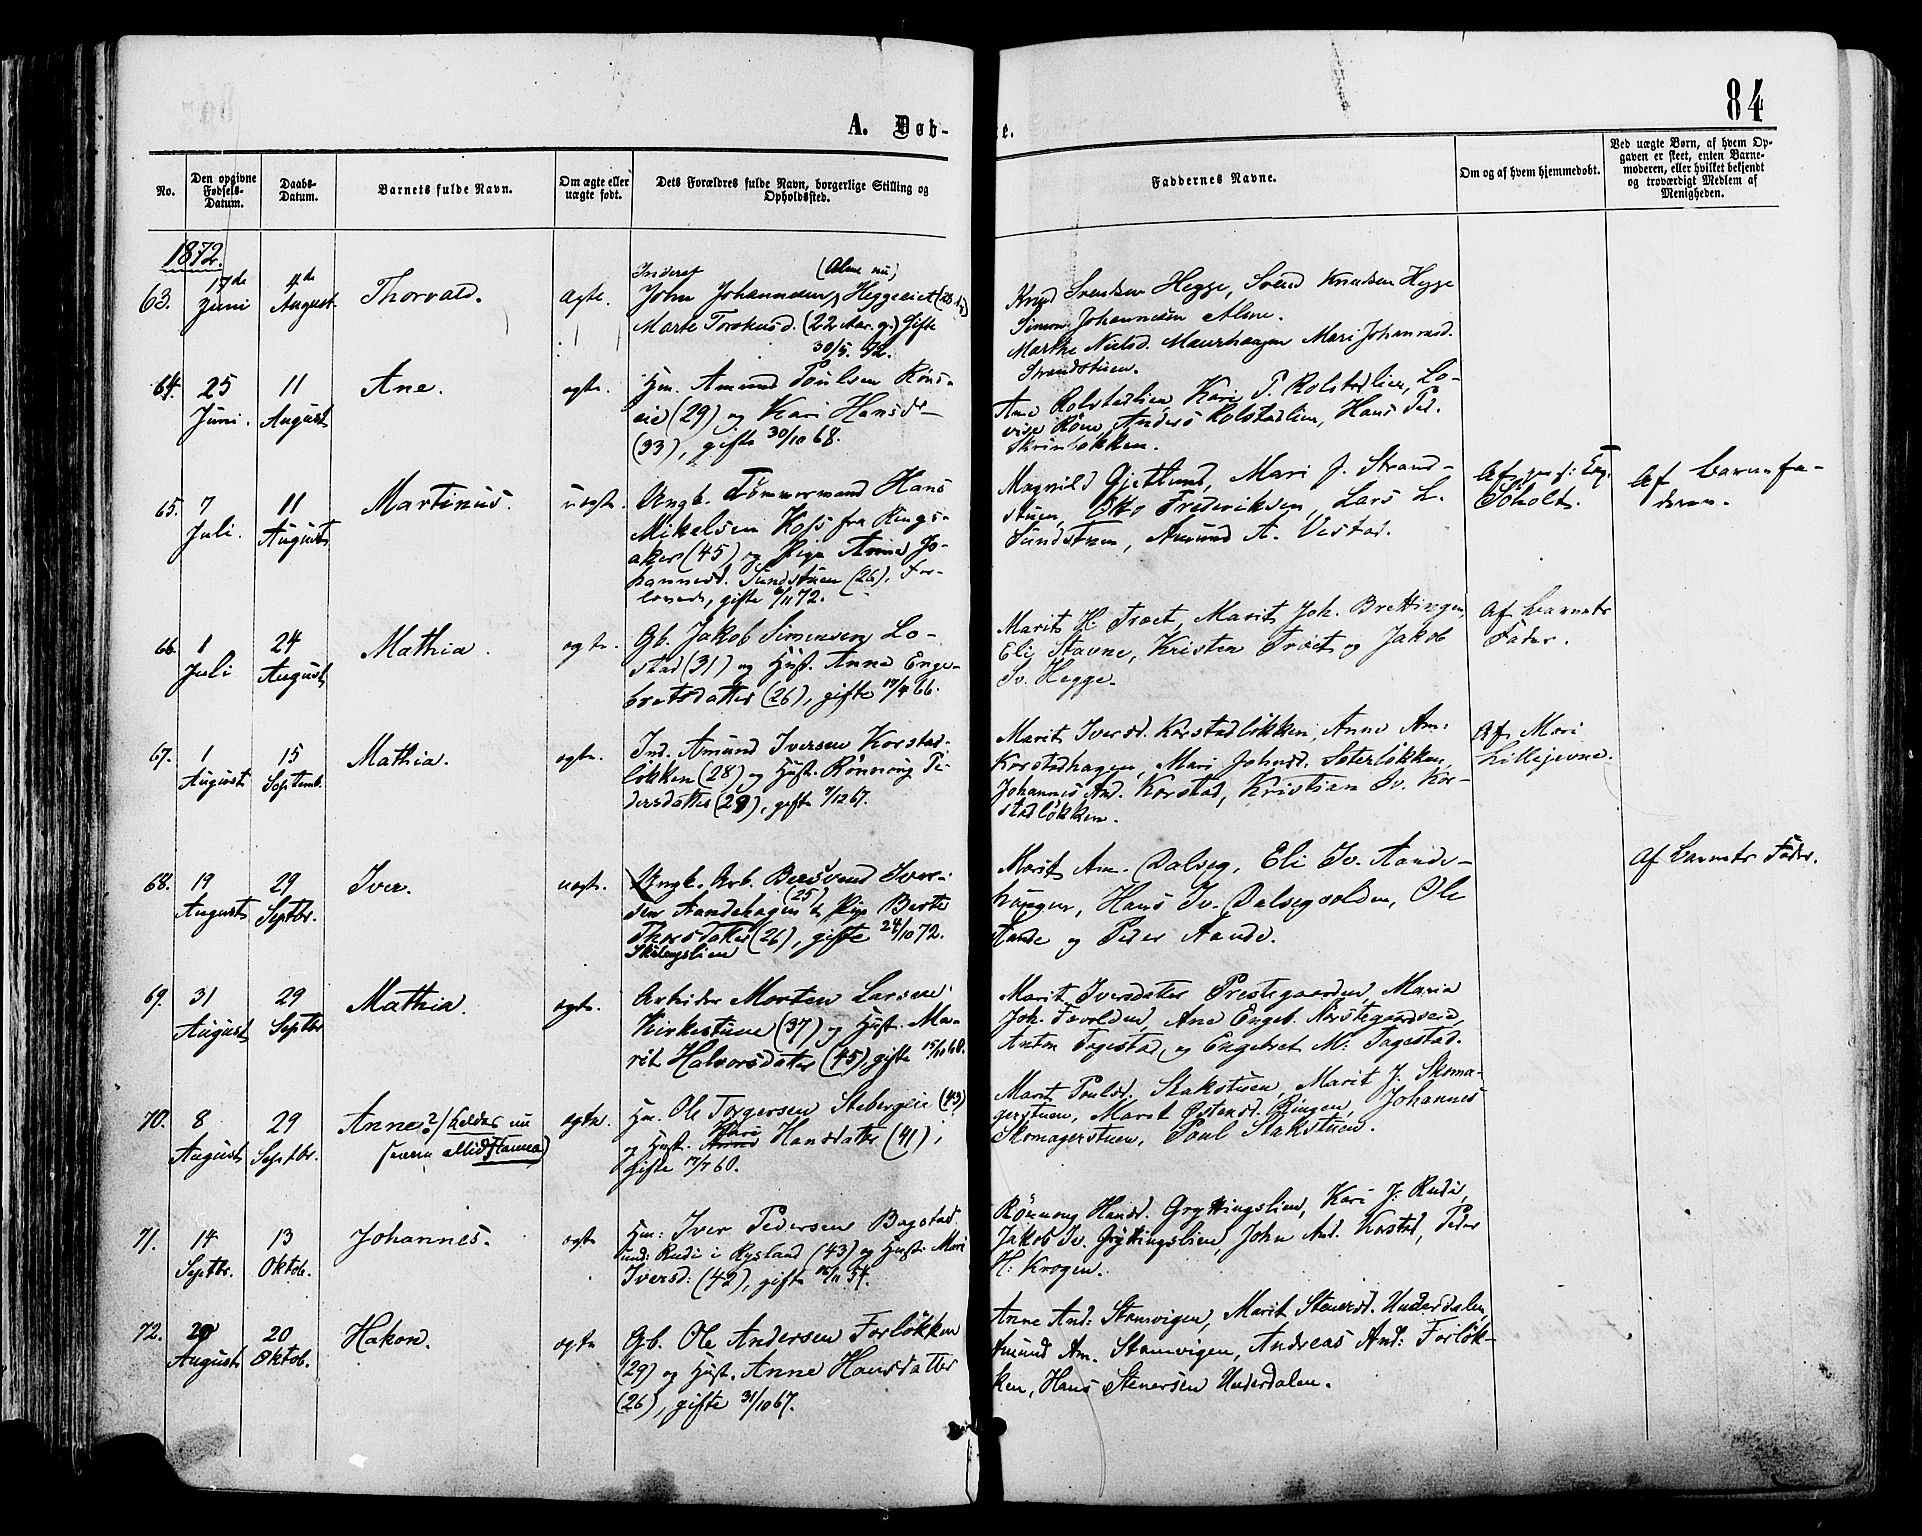 84
A. Døb-
te.
No.
Den opgivne Fødsels-Datum.
Daabs-Datum.
Barnets fulde Navn.
Om ægte eller uægte født.
Dets Forældres fulde Navn, borgerlige Stilling og Opholdssted.
Faddernes Navne.
Om og af hvem hjemmedøbt.
Ved uægte Børn, af hvem Opgaven er skeet, enten Barnemoderen, eller hvilket bekjendt og troværdigt Medlem af Menigheden.
1872.
63. 17de Juni 4de August. Thorvald. ægte.
Inderst (Alme nu)
John Johannesen Heggeeiet
Marte Torstensd. (22 Aar g.) Gifte
30/5. 72.
Knud Svendsen Hegge, Svend Knudsen Hegge
Simen Johannesen Alme.
Marthe Nielsd. Maurhaugen Mari Johannesd.
Strandstuen.
64. 25 Juni. 11 August Ane. ægte.
Hm. Amund Poulsen Røns-
eie (29) og Kari Hansdr
(33), gifte 30/10 68.
Ane Rolstadlien, Kari P. Rolstadlien, Lo-
vise Røne, Anders Rolstadlien, Hans Ped.
Skrinløkken.
65. 7 Juli. 11 August Martinus. uægte.
Ungk. Tømmermand Hans
Mikelsen Hoff fra Rings-
aker (45) og Pige Anne Jo-
hannesd. Sundstuen (26), For-
lovede, gifte 6/11 72.
Magnild Gjetlund, Mari J. Strand-
stuen, Otto Frederiksen, Lars L.
Sundstuen, Amund A. Vestad.
Søholt.
Af Barnefa-
deren.
66. 1 Juli 24 August Mathia. ægte.
Gb. Jakob Simensen Lo-
stad (31) og Hust. Anne Enge-
bretsdatter (26), gifte 17/4 66.
Marit H. Trøet, Marit Joh. Brettingen,
Eli Stavne, Kristen Trøet og Jakob
Sv. Hegge.
Af Barnets
Fader.
67. 1 August 15 Septemb. Mathia. ægte.
Ind. Amund Iversen Korstad-
løkken (28) og Hust. Rønnoug Pe-
dersdatter (29), gifte 7/12 67.
Marit Iversd. Korstadløkken, Anne Am:
Korstadhagen, Mari Johnsd. Sæterløkken,
Johannes And. Korstad, Kristian Iv. Kor-
stadløkken.
Af Mari
Lillejevne.
68. 19 August 29 Septbr. Iver. uægte.
Ungk. Arb. Bersvend Iver-
sen Aandehagen (25) & Pige Berte
Thorsdatter (26), gifte 24/10 72.
Skálengslien
Marit Am. Dalseg, Eli Iv. Aande-
haugen, Hans Iv. Dalsegvolden, Ole
Aande og Peder Aande.
Af Barnets Fader.
69. 31 August 29 Septbr Mathia. ægte.
Arbeider Morten Larsen
Kirkestuen (37) og Hust. Ma-
rit Halvorsdatter (45), gifte 15/10 60.
Marit Iversdatter Prestegaarden, Maria
Joh. Isvolden, Ane Engeb. Nørstegaardseie,
Anton Fagestad, og Engebret M: Fagestad.
70. 8 August 29 Septbr. Anne?/ kaldes nu
Hanna) ægte.
Hm. Ole Torgersen Stebergeie (43)
og Hust. Kari Anne Hansdatter (41),
Gifte 17/7 60.
Marit Poulsd. Stakstuen, Marit J. Skoma-
gerstuen, Marit Østensd. Ringen, Johannes
Skomagerstuen, Poul Stakstuen.
71. 14 Septbr. 13 Oktob. Johannes. ægte
Hm: Iver Pedersen Bagstad
und: Rudi i Rysland (43) og Hust. Mari
Iversd: (42), gifte 16/11 54.
Rønnoug Hansd. Gryttingslien, Kari J. Rudi,
Jakob Iv. Gryttingslien, John And. Korstad, Peder
H. Krogen.
72. 29 August 20 Oktob. Hakon. ægte
Gb. Ole Andersen Forløkken
(29) og Hust. Anne Hansdatter
(26), gifte 31/10 67.
Anne And: Stamvigen, Marit Stenersd. Underdalen,
Amund Am. Stamvigen, Andreas And: Forløk-
ken, Hans Stenersen Underdalen.